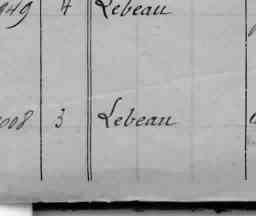 949 4 Lebeau
008 3 Lebeau